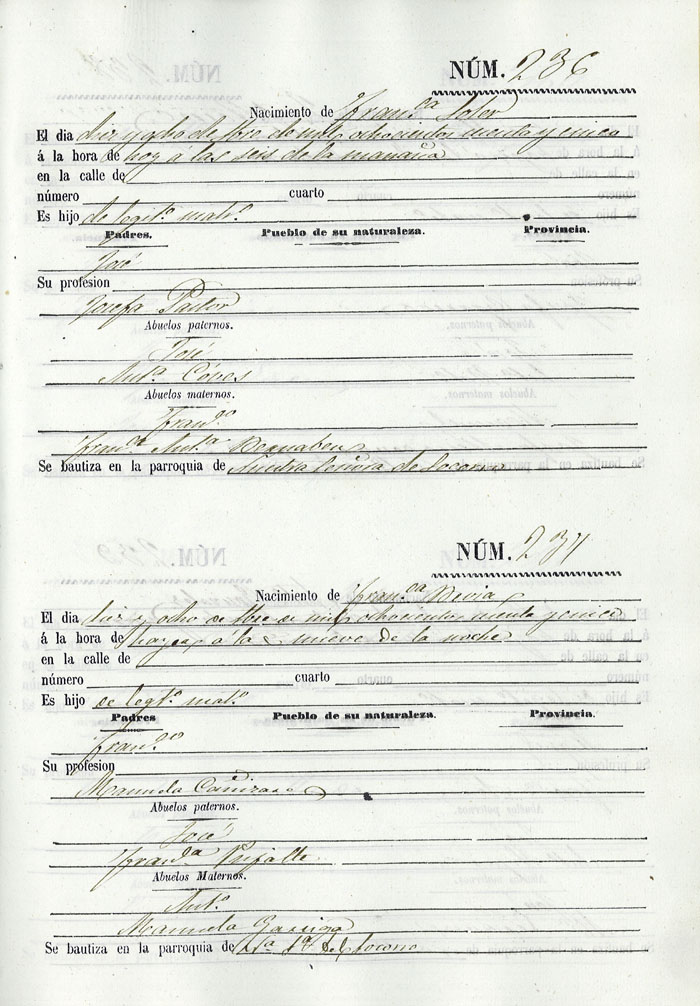 NÚM. 236
Nacimiento de Fran.ca Soler
El dia diez y ocho de de mil ochocientos y cinco
á la hora de hoy á las seis de la mañana
en la calle de
número cuarto
Es hijo de legit.o mat.o
Padres. Pueblo de su naturaleza. Provincia.
José
Su profesion
Josefa Pastor
Abuelos paternos.
José
Ant.a
Abuelos maternos.
Fran.co
Fran.ca Ant.a Bernabeu
Se bautiza en la parroquia de Nuestra Señora de Socorro
NÚM. 237
Nacimiento de Fran.ca Devia
El dia diez y ocho de de mil ochocientos y cinco
á la hora de á la nueve de la noche
en la calle de
número cuarto
Es hijo de legt.o mat.o
Padres Pueblo de su naturaleza. Provincia.
Fran.co
Su profesion
Manuela Cañizares
Abuelos paternos.
José
Fran.ca
Abuelos Maternos.
Ant.o
Manuela
Se bautiza en la parroquia de del Socorro